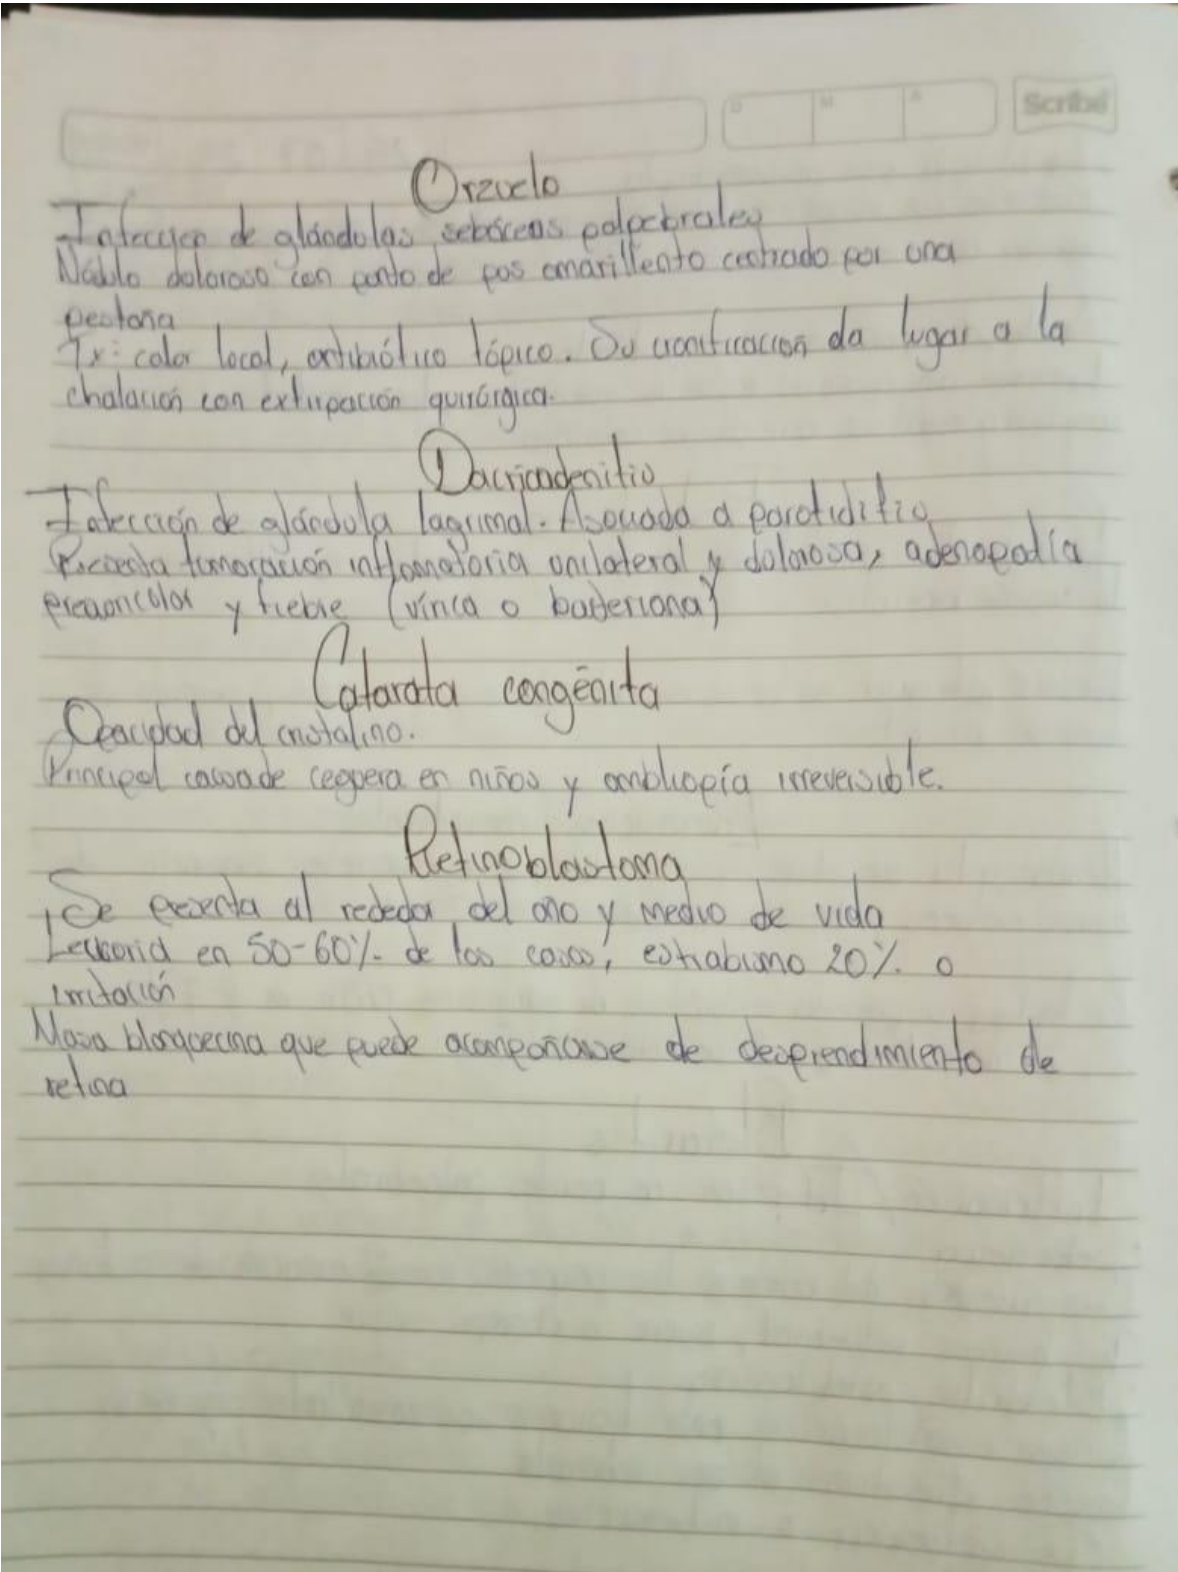 Scribe
D M A
Orzuelo
Infección de glándulas sebáceas palpebrales
Nódulo doloroso con punto de pus amarillento centrado por una
pestaña
Tx: calor local, antibiótico tópico. Su cronificación da lugar a la
chalación con extirpación quirúrgica.
Dacrioadenitis
Infección de glándula lagrimal. Asociada a parotiditis
Presenta tumoración inflamatoria unilateral y dolorosa, adenopatía
preauricular y fiebre (vírica o bacteriana)
Catarata congénita
Opacidad del cristalino.
Principal causa de ceguera en niños y ambliopía irreversible.
Retinoblastoma
Se presenta al rededor del año y medio de vida
Leucoria en 50-60% de los casos, estrabismo 20% o
irritación
Masa blanquecina que puede acompañarse de desprendimiento de
retina